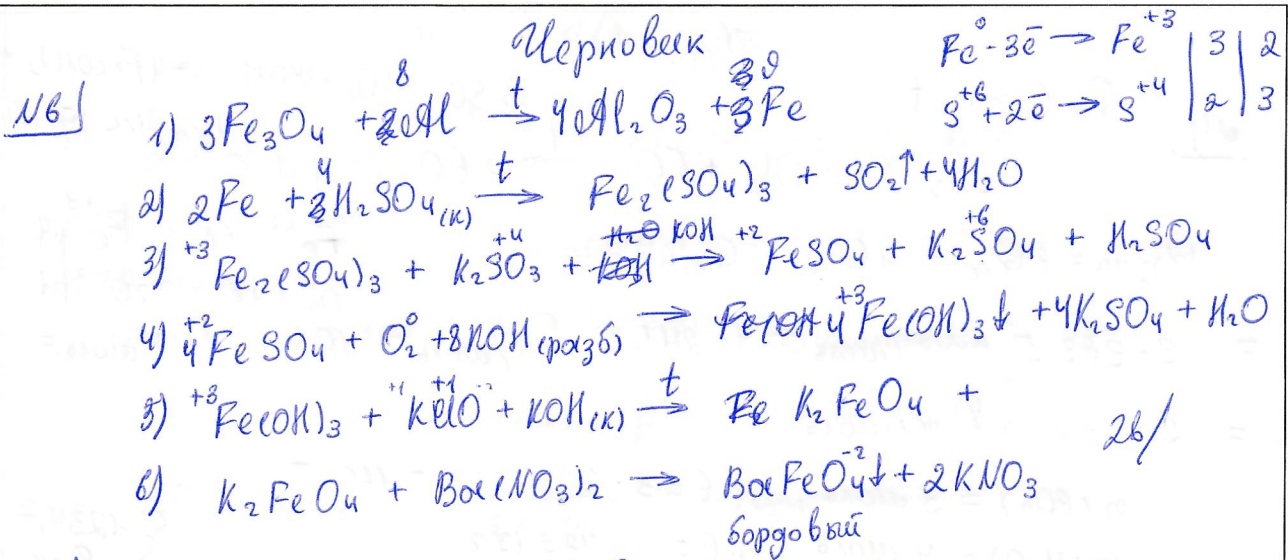 Черновик
Fe⁰ - 3ē → Fe⁺³ | 3 | 2
S⁺⁶ + 2ē → S⁺⁴ | 2 | 3
N6
1) 3Fe₃O₄ + 8Al —t→ 4Al₂O₃ + 9Fe
2) 2Fe + 4H₂SO₄(к) —t→ Fe₂(SO₄)₃ + SO₂↑ + 4H₂O
3) ⁺³Fe₂(SO₄)₃ + K₂S⁺⁴O₃ + KOH → ⁺²FeSO₄ + K₂S⁺⁶O₄ + H₂SO₄
4) 4⁺²FeSO₄ + O₂⁰ + 8KOH(разб) → 4⁺³Fe(OH)₃↓ + 4K₂SO₄ + H₂O
5) ⁺³Fe(OH)₃ + K⁺¹Cl⁺¹O⁻² + KOH(к) —t→ K₂FeO₄ +
6) K₂FeO₄ + Ba(NO₃)₂ → BaFeO₄⁻²↓ + 2KNO₃
бордовый